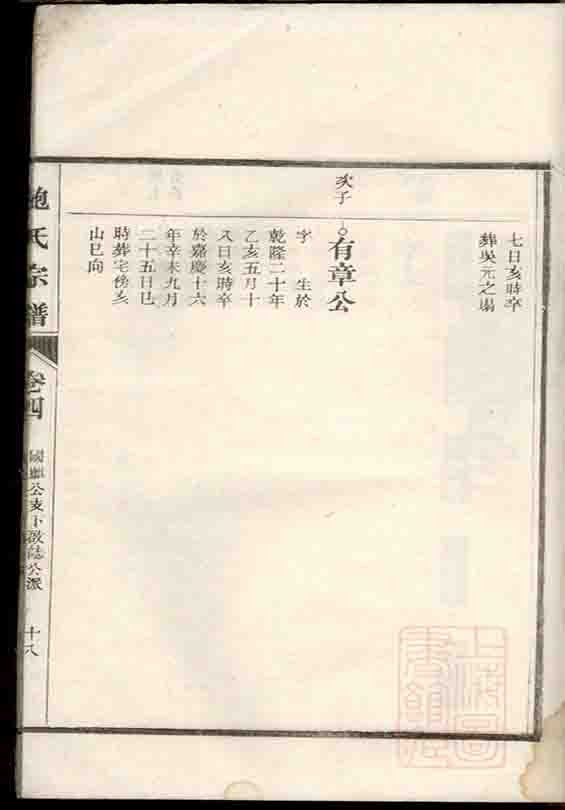 七日亥時卒
葬吳元之塲
次子
有章公
字　生於
乾隆二十年
乙亥五月十
八日亥時卒
於嘉慶十六
年辛未九月
二十五日巳
時葬宅傍亥
山巳向
鮑氏宗譜
卷四
公支下啟誌公派
十八
上海圖書館藏